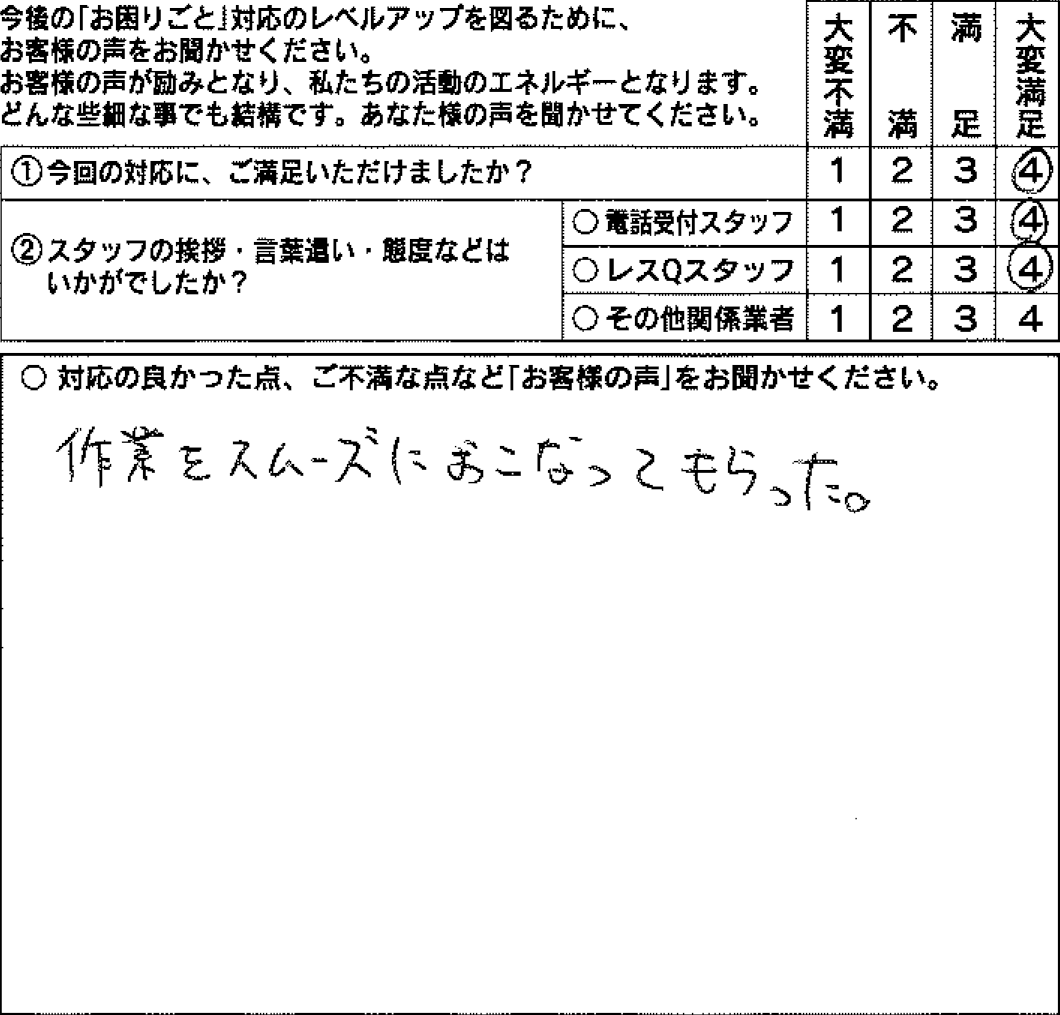 今後の「お困りごと」対応のレベルアップを図るために、
お客様の声をお聞かせください。
お客様の声が励みとなり、私たちの活動のエネルギーとなります。
どんな些細な事でも結構です。あなた様の声を聞かせてください。
大変不満 不満 満足 大変満足
①今回の対応に、ご満足いただけましたか？ 1 2 3 4
②スタッフの挨拶・言葉遣い・態度などは
いかがでしたか？
○電話受付スタッフ 1 2 3 4
○レスQスタッフ 1 2 3 4
○その他関係業者 1 2 3 4
○ 対応の良かった点、ご不満な点など「お客様の声」をお聞かせください。
作業をスムーズにおこなってもらった。